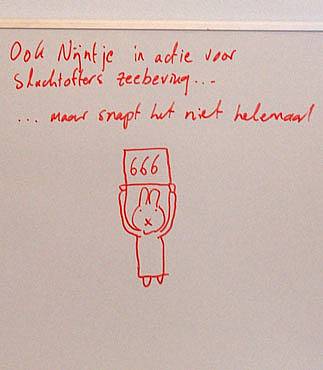 Ook Nijntje in actie voor
slachtoffers zeebeving...
... maar snapt het niet helemaal
666